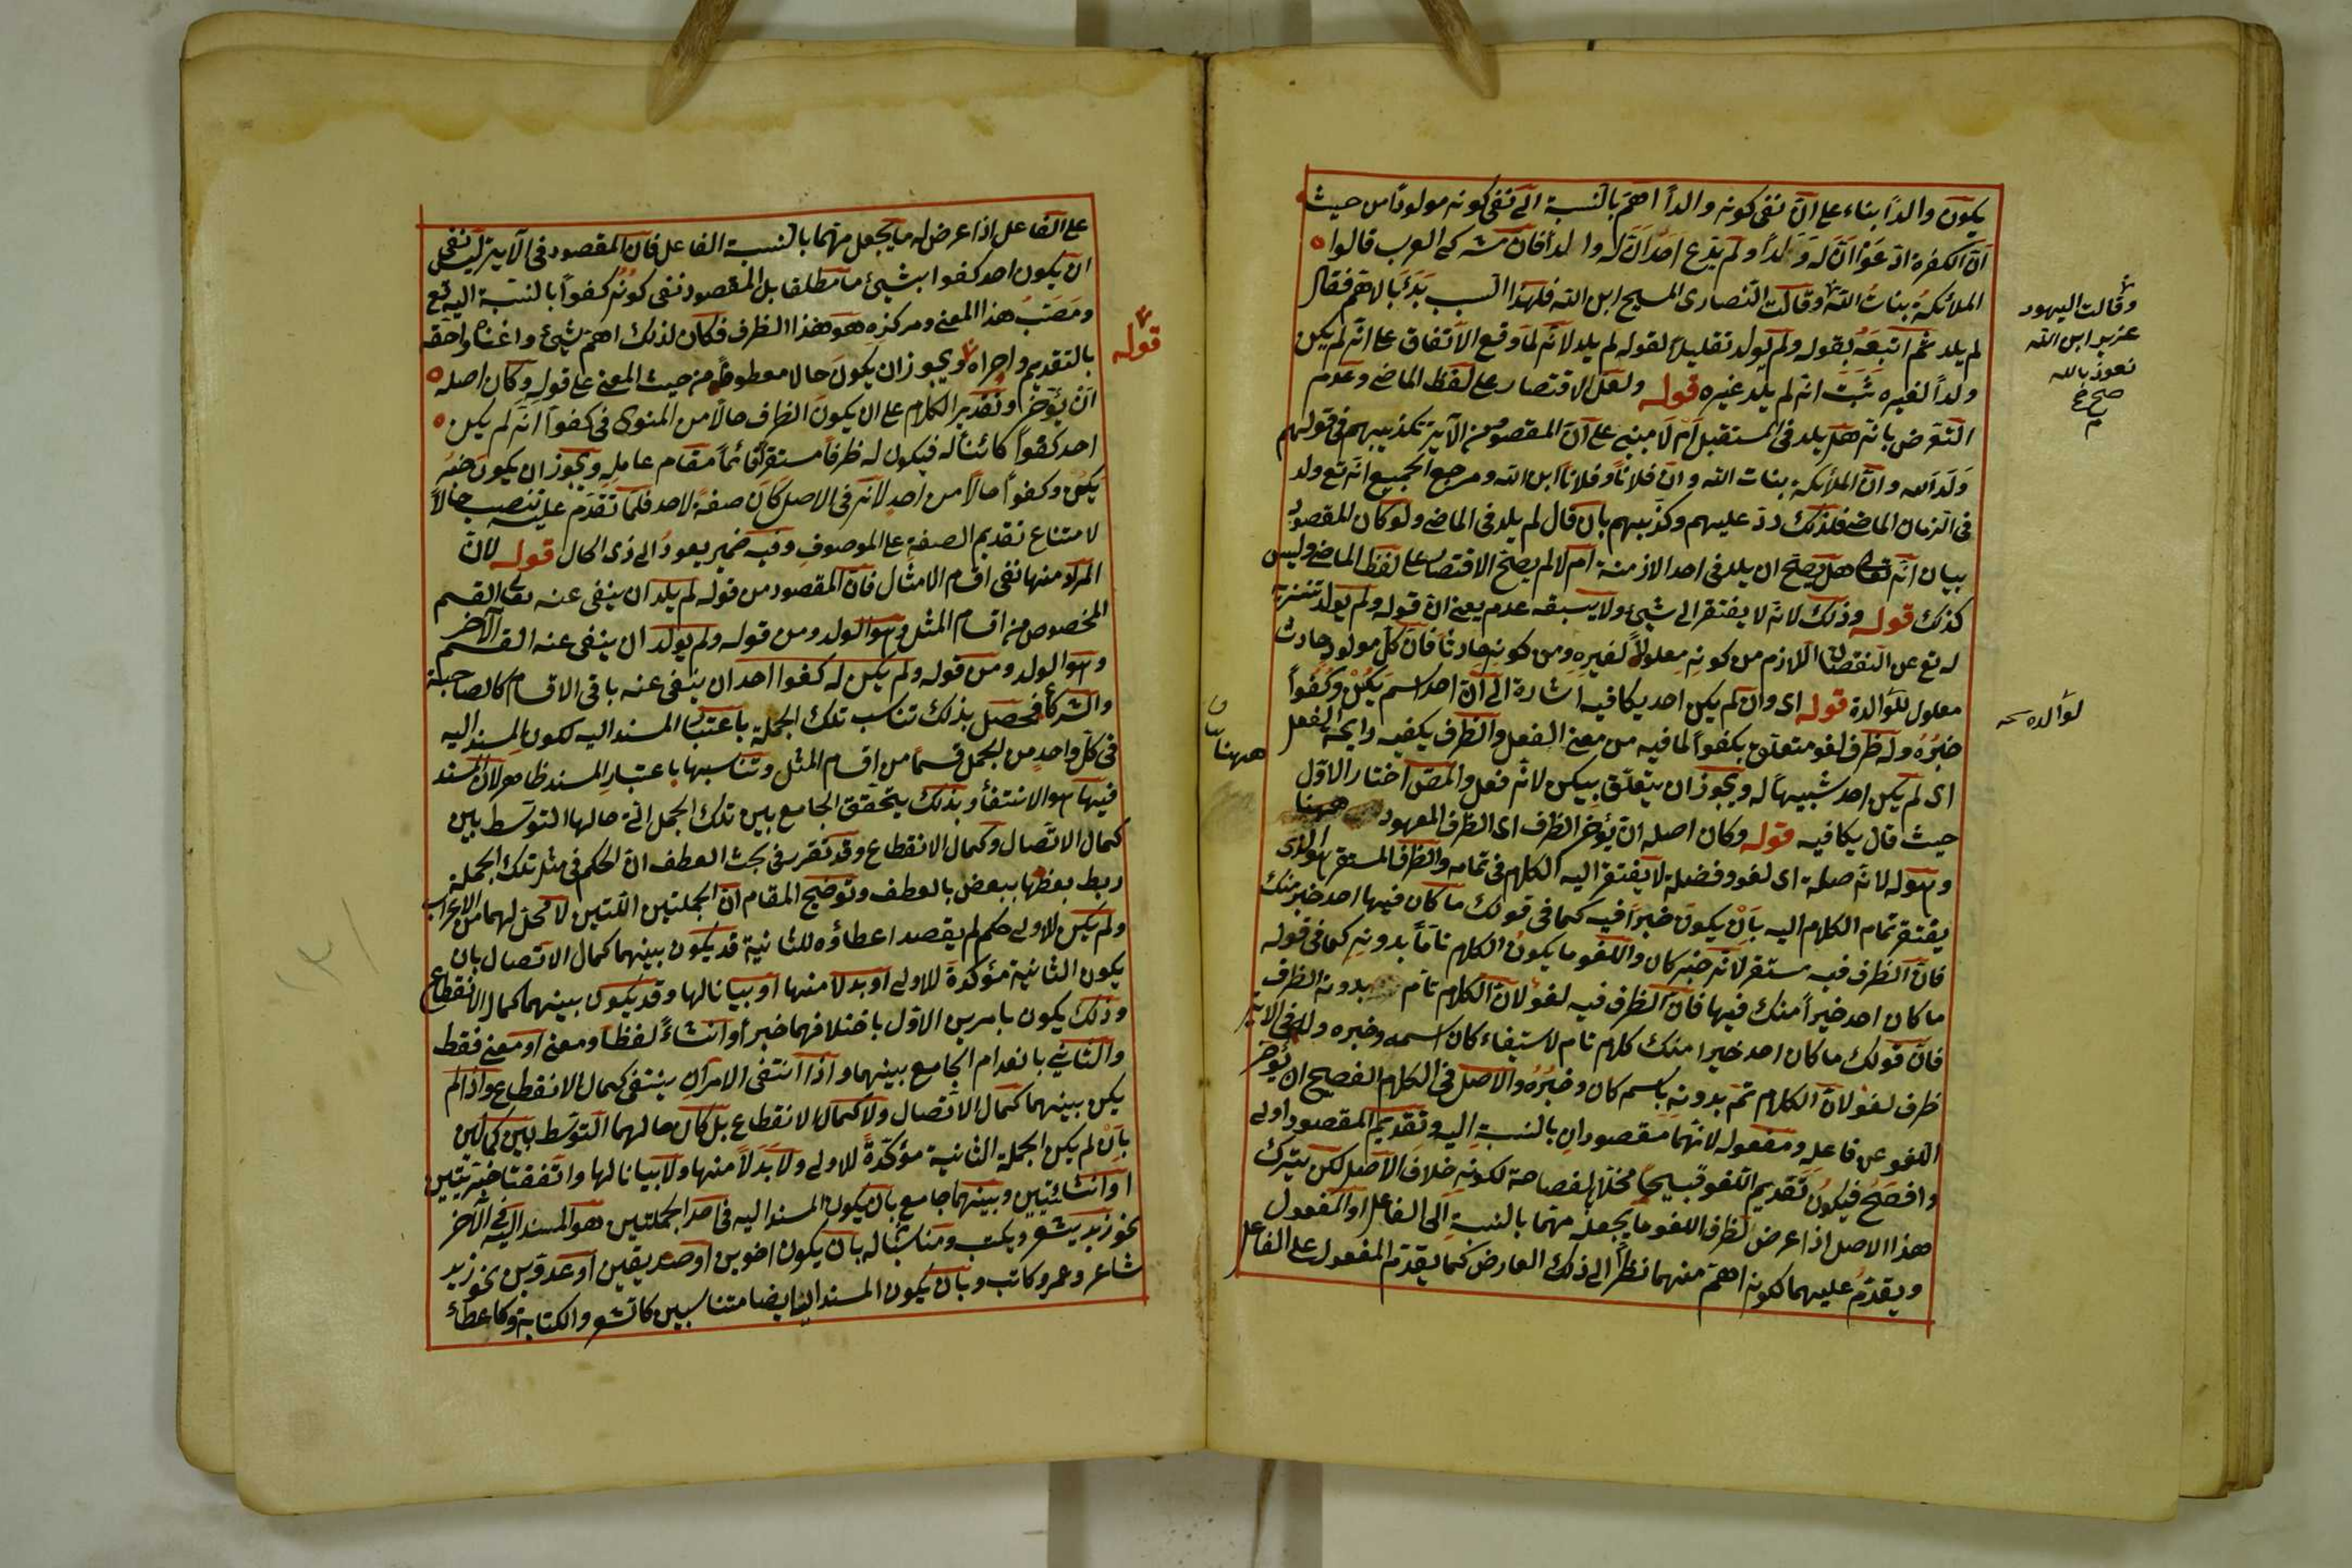 يكون والداً بناء على ان نفى كونه والداً اهم بالنسبة الى نفى كونه مولوداً من حيث
ان الكفرة ادّعَوْا ان له وَلَداً ولم يدّع احد ان له والداً فان مشركى العرب قالوا
الملائكةُ بناتُ الله وقالت النصارى المسيح ابن الله فلهذا السبب بَدَءَ بالاهمّ فقال
لم يلد ثم اتبعَهُ بقوله ولم يولد تقليلاً لقوله لم يلد لانه لما وقع الاتفاق على انه لم يكن
ولداً لغيره ثَبَتَ انه لم يلد غيره قوله ولعل الاقتصار على لفظ الماضى وعدم
التعرض بانه هل يلد فى المستقبل ام لا مبنى على ان المقصود من الآية تكذيبهم فى قولهم
وَلَدَ الله وانّ الملائكة بنات الله وانّ فلاناً وفلاناً ابن الله ومرجع الجميع انه تع ولد
فى الزمان الماضى فلذلك ردّ عليهم وكذّبهم بان قال لم يلد فى الماضى ولو كان المقصود
بيان انّه تعالى هل يصحّ ان يلد فى احد الازمنة ام لا لم يصحّ الاقتصار على لفظ الماضى وليس
كذلك قوله وذلك لانه لا يفتقر الى شيئ ولا يسبقه عدم يعنى ان قوله ولم يولد تنزيه
له تع عن النقصان اللازم من كونهِ معلولاً لغيرهِ ومن كونه حادثاً فان كل مولود حادث
معلول للوالدة قوله اى وان لم يكن احد يكافيه اشارة الى ان احد اسمَ يَكُنْ وكُفُواً
خبرُهُ وله ظرف لغو متعلق بكفواً لما فيه من معنى الفعل والظرف يكفيه رايحة الفعل
اى لم يكن احد شبيهاً له ويجوز ان يتعلّق بيكن لانّه فعل والمصّ اختار الاوّل
حيث قال يكافيه قوله وكان اصله ان يُؤخّر الظرف اى الظرف المعهود ههنا
وهو له لانه صلة اى لغو وفضلة لا يفتقر اليه الكلام فى تمامه والظرف المستقر هو الذى
يفتقر تمام الكلام اليه بان يكون خبرَاً فيه كما فى قولك ما كان فيها احد خير منك
فانّ الظرف فيه مستقر لانه خبر كان واللغو ما يكونُ الكلام تامّاً بدونهِ كما فى قوله
ما كان احد خيراً منك فيها فان الظرف فيه لغوٌ لانّ الكلام تام بدونه الظرف
فانّ قولك ما كان احد خيرا منك كلام تام لاستيفاء كان اسمه وخبره وله فى الآية
ظرف لغو لانّ الكلام تمّ بدونه باسم كان وخبرُهُ والاصل فى الكلام الفصيح ان يُؤخّر
اللغو عن فاعلِهِ ومفعوله لانّهما مقصودانِ بالنسبةِ اليه وتقديم المقصود اولى
وافصَحُ فيكونُ تقديم اللغو قبيحاً مُخلّاً بالفصاحة لكونه خلافَ الاصل لكن يترك
هذا الاصل اذا عرض لظرف اللغو ما يجعلُه مهتما بالنسبة الى الفاعل او المفعول
ويقدّمُ عليهما لكونه اهمّ منهما نظراً الى ذلك العارض كما يقدّم المفعول على الفاعل
وقالت اليهود
عزير ابن الله
نعوذ بالله
صح
لوالده
ههنا
على الفاعل اذا عرض له ما يجعل مهتما بالنسبة الفاعل فان المقصود فى الآية ليس نفى
ان يكون احد كفوا بشيئ ما مطلقا بل المقصود نفى كونُه كفواً بالنسبة اليه تع
ومَصَبّ هذا المعنى ومركزهِ هو هذا الظرف فكان لذلك اهمّ شيئ واغناه واحقّه
بالتقديم واحراه ويجوز ان يكونَ حالا معطوف من حيث المعنى على قولهِ وكان اصله
ان يُؤخّر وتقدير الكلام على ان يكونَ الظرف حالاً من المنوى فى كفواً انه لم يكن
احد كفُواً كائناً له فيكون له ظرفاً مستقراً قائماً مقام عاملِهِ ويجوز ان يكون خبر
يكن وكفواً حالاً من احدٍ لانه فى الاصل كان صفةً لاحد فلما تقدّم عليه تنصب حالاً
لامتناع تقديم الصفة على الموصوفِ وفيه ضمير يعودُ الى ذى الحال قوله لانّ
المراد منها نفى اقسام الامثال فانّ المقصود من قوله لم يلد ان ينفى عنه تعالى القسم
المخصوص من اقسام المثل وهو الولد ومن قوله ولم يولد ان ينفى عنه القسم الآخر
وهو الولد ومن قوله ولم يكن له كفوا احد ان ينفى عنه باقى الاقسام كالصاحبة
والشركأ فحصل بذلك تناسب تلك الجملة باعتبار المسند اليه لكون المسند اليه
فى كلّ واحدٍ من الجمل قسماً من اقسام المثل وتناسبها باعتبار المسند ظاهر لان المسند
فيها هو الانتفأ وبذلك يتحقّق الجامع بين تلك الجمل التى حالها التوسّط بين
كمال الاتّصال وكمال الانقطاع وقد تقرر فى بحث العطف ان الحكم فى مثل تلك الجملة
ربط بعضها ببعض بالعطف وتوضيح المقام انّ الجملتين اللتين لا محلّ لهما من الاعراب
ولم يكن للاولى حكم لم يقصد اعطاؤه للثانية قد يكون بينهما كمال الاتصال بان
يكون الثانية مؤكدة للاولى او بدلا منها او بيانا لها وقد يكون بينهما كمال الانقطاع
وذلك يكون بامرين الاوّل باختلافهما خبراً وانشاءً لفظا ومعنى او معنى فقط
والثانى بانعدام الجامع بينهما واذا انتفى الامران ينتفى كمال الانقطاع واذا لم
يكن بينهما كمال الاتصال ولا كمال الانقطاع بل كان حالهما التوسّط بين كمالين
بان لم يكن الجملة الثانية مؤكّدةً للاولى ولا بَدَلاً منها ولا بيانا لها واتّفقتا خبريتين
او انشائيتين وبينهما جامع بان يكون المسند اليه فى احد الجملتين هو المسند اليه فى الآخر
نحو زيد يشعر ويكتب ومناسبا له بان يكون اخوين او صديقين او عدوّين نحو زيد
شاعر وعمرو كاتب وبان يكون المسند ايضا متناسبين كالشعر والكتابة وكاعطأ
قوله